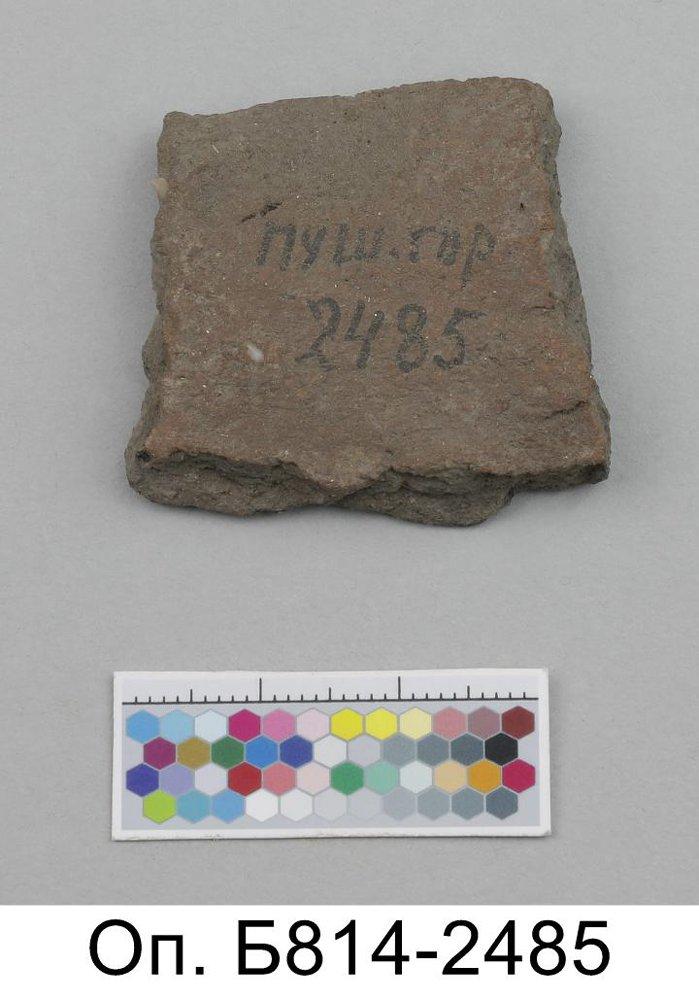 ПУШ. ГОР.
2485
Оп. Б814-2485